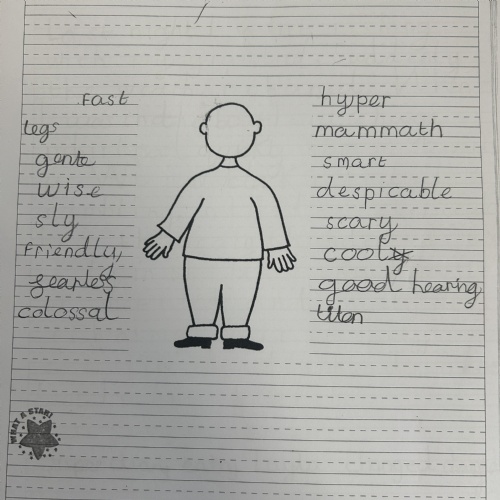 Fast
legs
gente
wise
sly
friendly,
fearless
colossal
hyper
mammath
smart
despicable
scary
cool
good hearing
titan
WHAT A STAR!